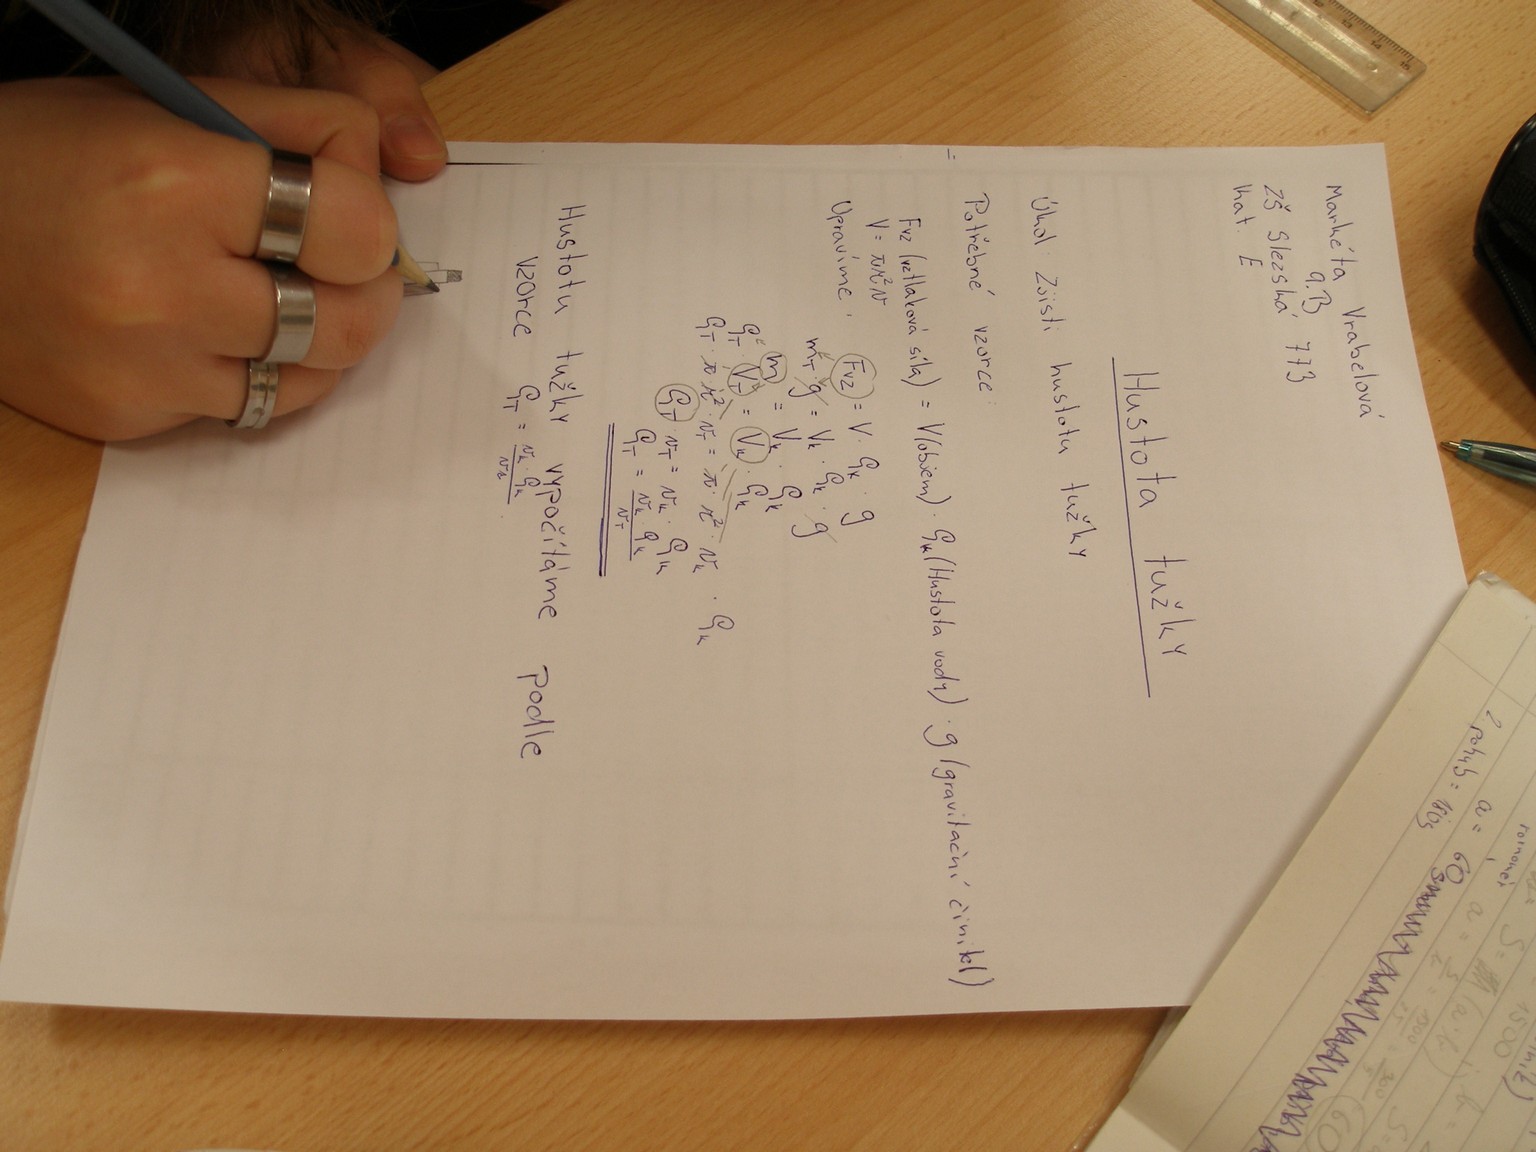 Markéta Vrabelová
9.B
ZŠ Slezská 773
kat. E
Hustota tužky
Úkol: Zjisti hustotu tužky
Potřebné vzorce:
Fvz (vztlaková síla) = V(objem) · ρk (Hustota vody) · g (gravitační činitel)
V = πr²v
Upravíme:
Fvz = V · ρk · g
mT · g = Vk · ρk · g
m = Vk · ρk
ρT · VT = Vk · ρk
ρT · π · r² · vT = π · r² · vk · ρk
ρT · vT = vk · ρk
ρT = vk · ρk / vT
Hustotu tužky vypočítáme podle
vzorce ρT = vk · ρk / vt.
2 pohyb =
a = 60